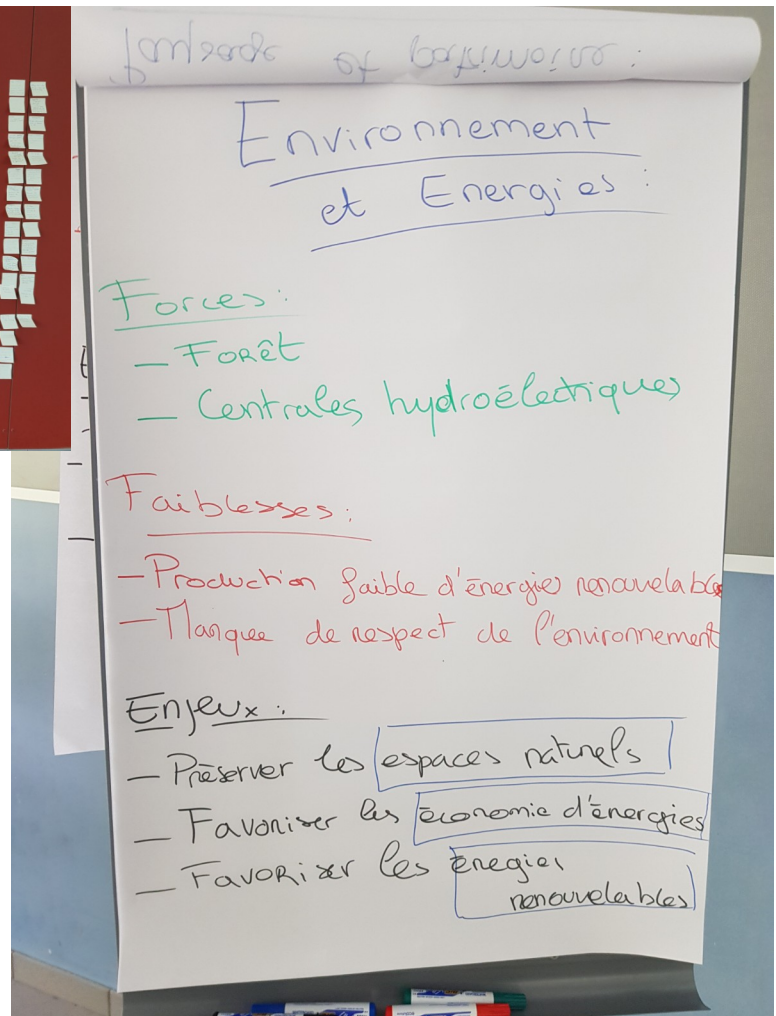 Environnement
et Energies :
Forces :
- Forêt
- Centrales hydroélectriques
Faiblesses :
- Production faible d'énergies renouvelables
- Manque de respect de l'environnement
Enjeux :
- Préserver les espaces naturels
- Favoriser les économie d'énergies
- Favoriser les énegies
renouvelables